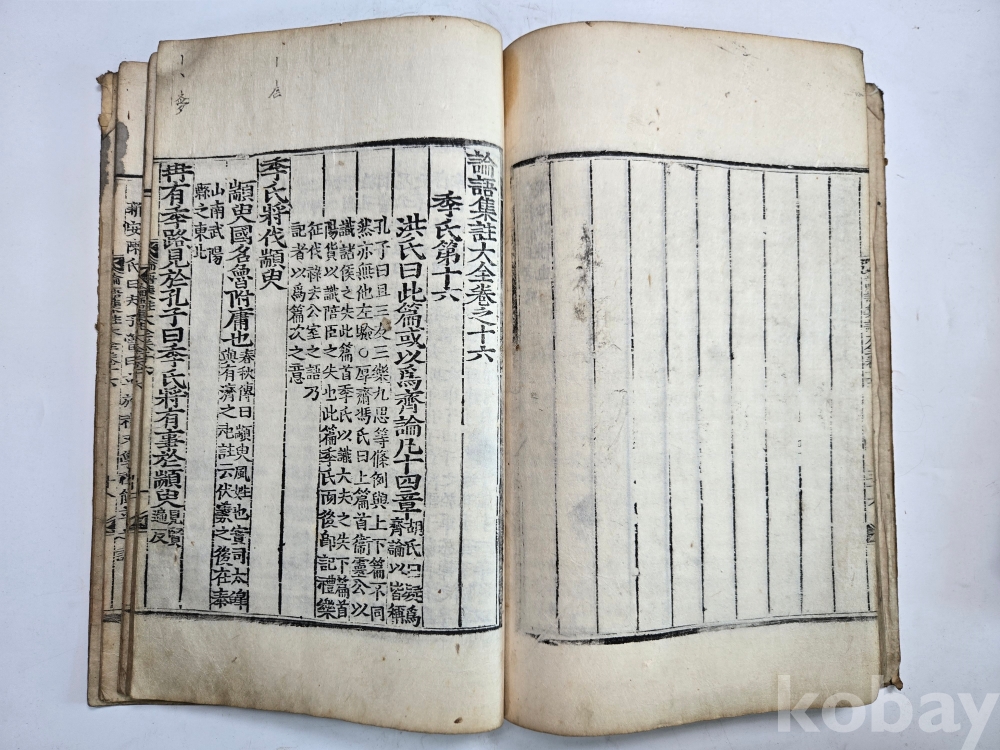 論語集註大全卷之十六
季氏第十六
洪氏曰此篇或以爲齊論凡十四章
胡氏曰疑爲
齊論以皆稱
孔子曰且三友三樂九思等條例與上下篇不同
然亦無他左驗○厚齋馮氏曰上篇首衛靈公以
譏諸侯之失此篇首季氏以譏大夫之失下篇首
陽貨以譏陪臣之失也此篇季氏而後卽記禮樂
征伐祿去公室之語乃
記者以爲篇次之意
季氏將伐顓臾
顓臾國名魯附庸也
春秋傳曰顓臾風姓也實司太皥
與有濟之祀註云伏羲之後在泰
山南武陽
縣之東北
冉有季路見於孔子曰季氏將有事於顓臾
見賢
遍反
kobay